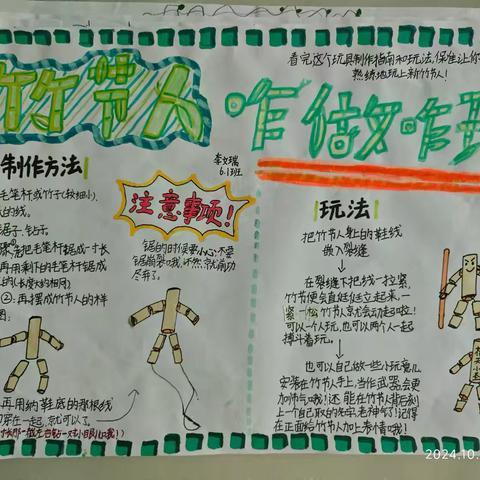 竹节人
咋做咋玩
看完这个玩具制作指南和玩法,保准让你
熟练地玩上新竹节人!
李文瑞
6.1班
制作方法
毛笔杆或竹子(较细小)、
的线。
锯子、钻子。
把毛笔杆锯成一寸长
再用剩下的毛笔杆锯成
的(长度大约相同)
②.再摆成竹节人的样
图:
再用纳鞋底的那根线
穿在一起,就可以了。
注意事项!
锯的时候要小心,不要
锯崩裂哦,不然就前功
尽弃了。
玩法
把竹节人上的鞋线
嵌入裂缝
在裂缝下把线一拉紧,
竹节便会直挺挺立起来,一
紧一松竹节人就会动起啦!
可以一个人玩,也可以两个人一起
搏斗着玩。
也可以自己做一些小玩意儿
安装在竹节人手上,当作武器,会更
加帅气哦!还能在竹节人背后刻
上一个自己取的名号,老神气了!记得
在正面给竹节人加上表情哦!
2024.10.